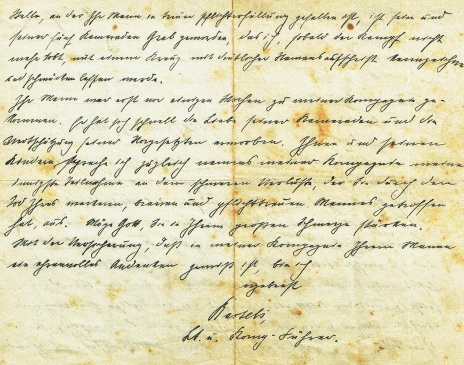 Stelle, an der Ihr Mann in treuer Pflichterfüllung gefallen ist, ist sein und
seiner fünf Kameraden Grab geworden, das ich, sobald der Kampf nicht
mehr tobt, mit einem Kreuz mit deutlicher Namensaufschrift
und schmücken lassen werde.
Ihr Mann war erst vor einigen Wochen zu meiner Kompagnie ge-
kommen. Er hat sich schnell die Liebe seiner Kameraden und die
Wertschätzung seiner Vorgesetzten erworben. Ihnen und seinen
Kindern spreche ich zugleich namens meiner Kompagnie meine
innigste Teilnahme an dem schweren Verluste, der Sie durch den
Tod Ihres braven und pflichttreuen Mannes getroffen
hat, aus. Möge Gott Sie in Ihrem großen Schmerze stärken.
Mit der Versicherung, daß in meiner Kompagnie Ihrem Manne
ein ehrenvolles Andenken gewiß ist, bin ich
ergebenst
Bartels,
Lt. u. Komp.-Führer.